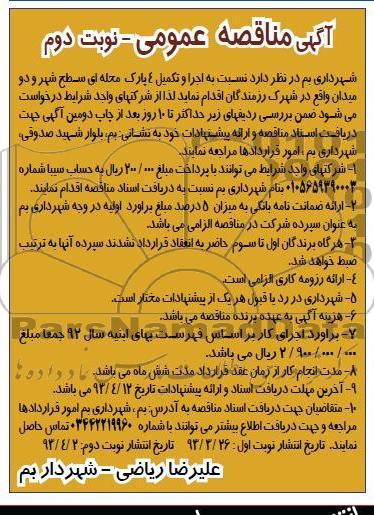 آگهی مناقصه عمومی - نوبت دوم
شهرداری بم در نظر دارد نسبت به اجرا و تکمیل ٤ پارک محله ای سطح شهر و دو
میدان واقع در شهرک رزمندگان اقدام نماید لذا از شرکتهای واجد شرایط درخواست
می شود ضمن بررسی ردیفهای زیر حداکثر تا ۱۰ روز بعد از چاپ دومین آگهی جهت
دریافت اسناد مناقصه و ارائه پیشنهادات خود به نشانی: بم، بلوار شهید صدوقی،
شهرداری بم ، امور قراردادها مراجعه نمایند.
۱- شرکتهای واجد شرایط می توانند با پرداخت مبلغ ۲۰۰/۰۰۰ ریال به حساب سیبا شماره
۰۱۰۵۶۵۹۳۹۰۰۰۳ بنام شهرداری بم نسبت به دریافت اسناد مناقصه اقدام نمایند.
۲- ارائه ضمانت نامه بانکی به میزان ۵ درصد مبلغ براورد اولیه در وجه شهرداری بم
به عنوان سپرده شرکت در مناقصه الزامی می باشد.
۳- هرگاه برندگان اول تا سوم حاضر به انعقاد قرارداد نشدند سپرده آنها به ترتیب
ضبط خواهد شد.
٤- ارائه رزومه کاری الزامی است.
۵- شهرداری در رد یا قبول هر یک از پیشنهادات مختار است.
۶- هزینه آگهی به عهده برنده مناقصه می باشد.
۷- براورد اجرای کار بر اساس فهرست بهای ابنیه سال ۹۲ جمعا مبلغ
۲/۹۰۰/۰۰۰/۰۰۰ ریال می باشد.
۸- مدت انجام کار از زمان عقد قرارداد مدت شش ماه می باشد.
۹- آخرین مهلت دریافت اسناد و ارائه پیشنهادات تاریخ ۹۳/٤/۱۲ می باشد.
۱۰- متقاضیان جهت دریافت اسناد مناقصه به آدرس: بم ، شهرداری بم امور قراردادها
مراجعه و جهت دریافت اطلاع بیشتر می توانند با شماره ۰۳۴۴۲۲۱۹۹۶۰ تماس حاصل
نمایند. تاریخ انتشار نوبت اول : ۹۳/۳/۲۶ تاریخ انتشار نوبت دوم: ۹۳/٤/۲
علیرضا ریاضی - شهردار بم